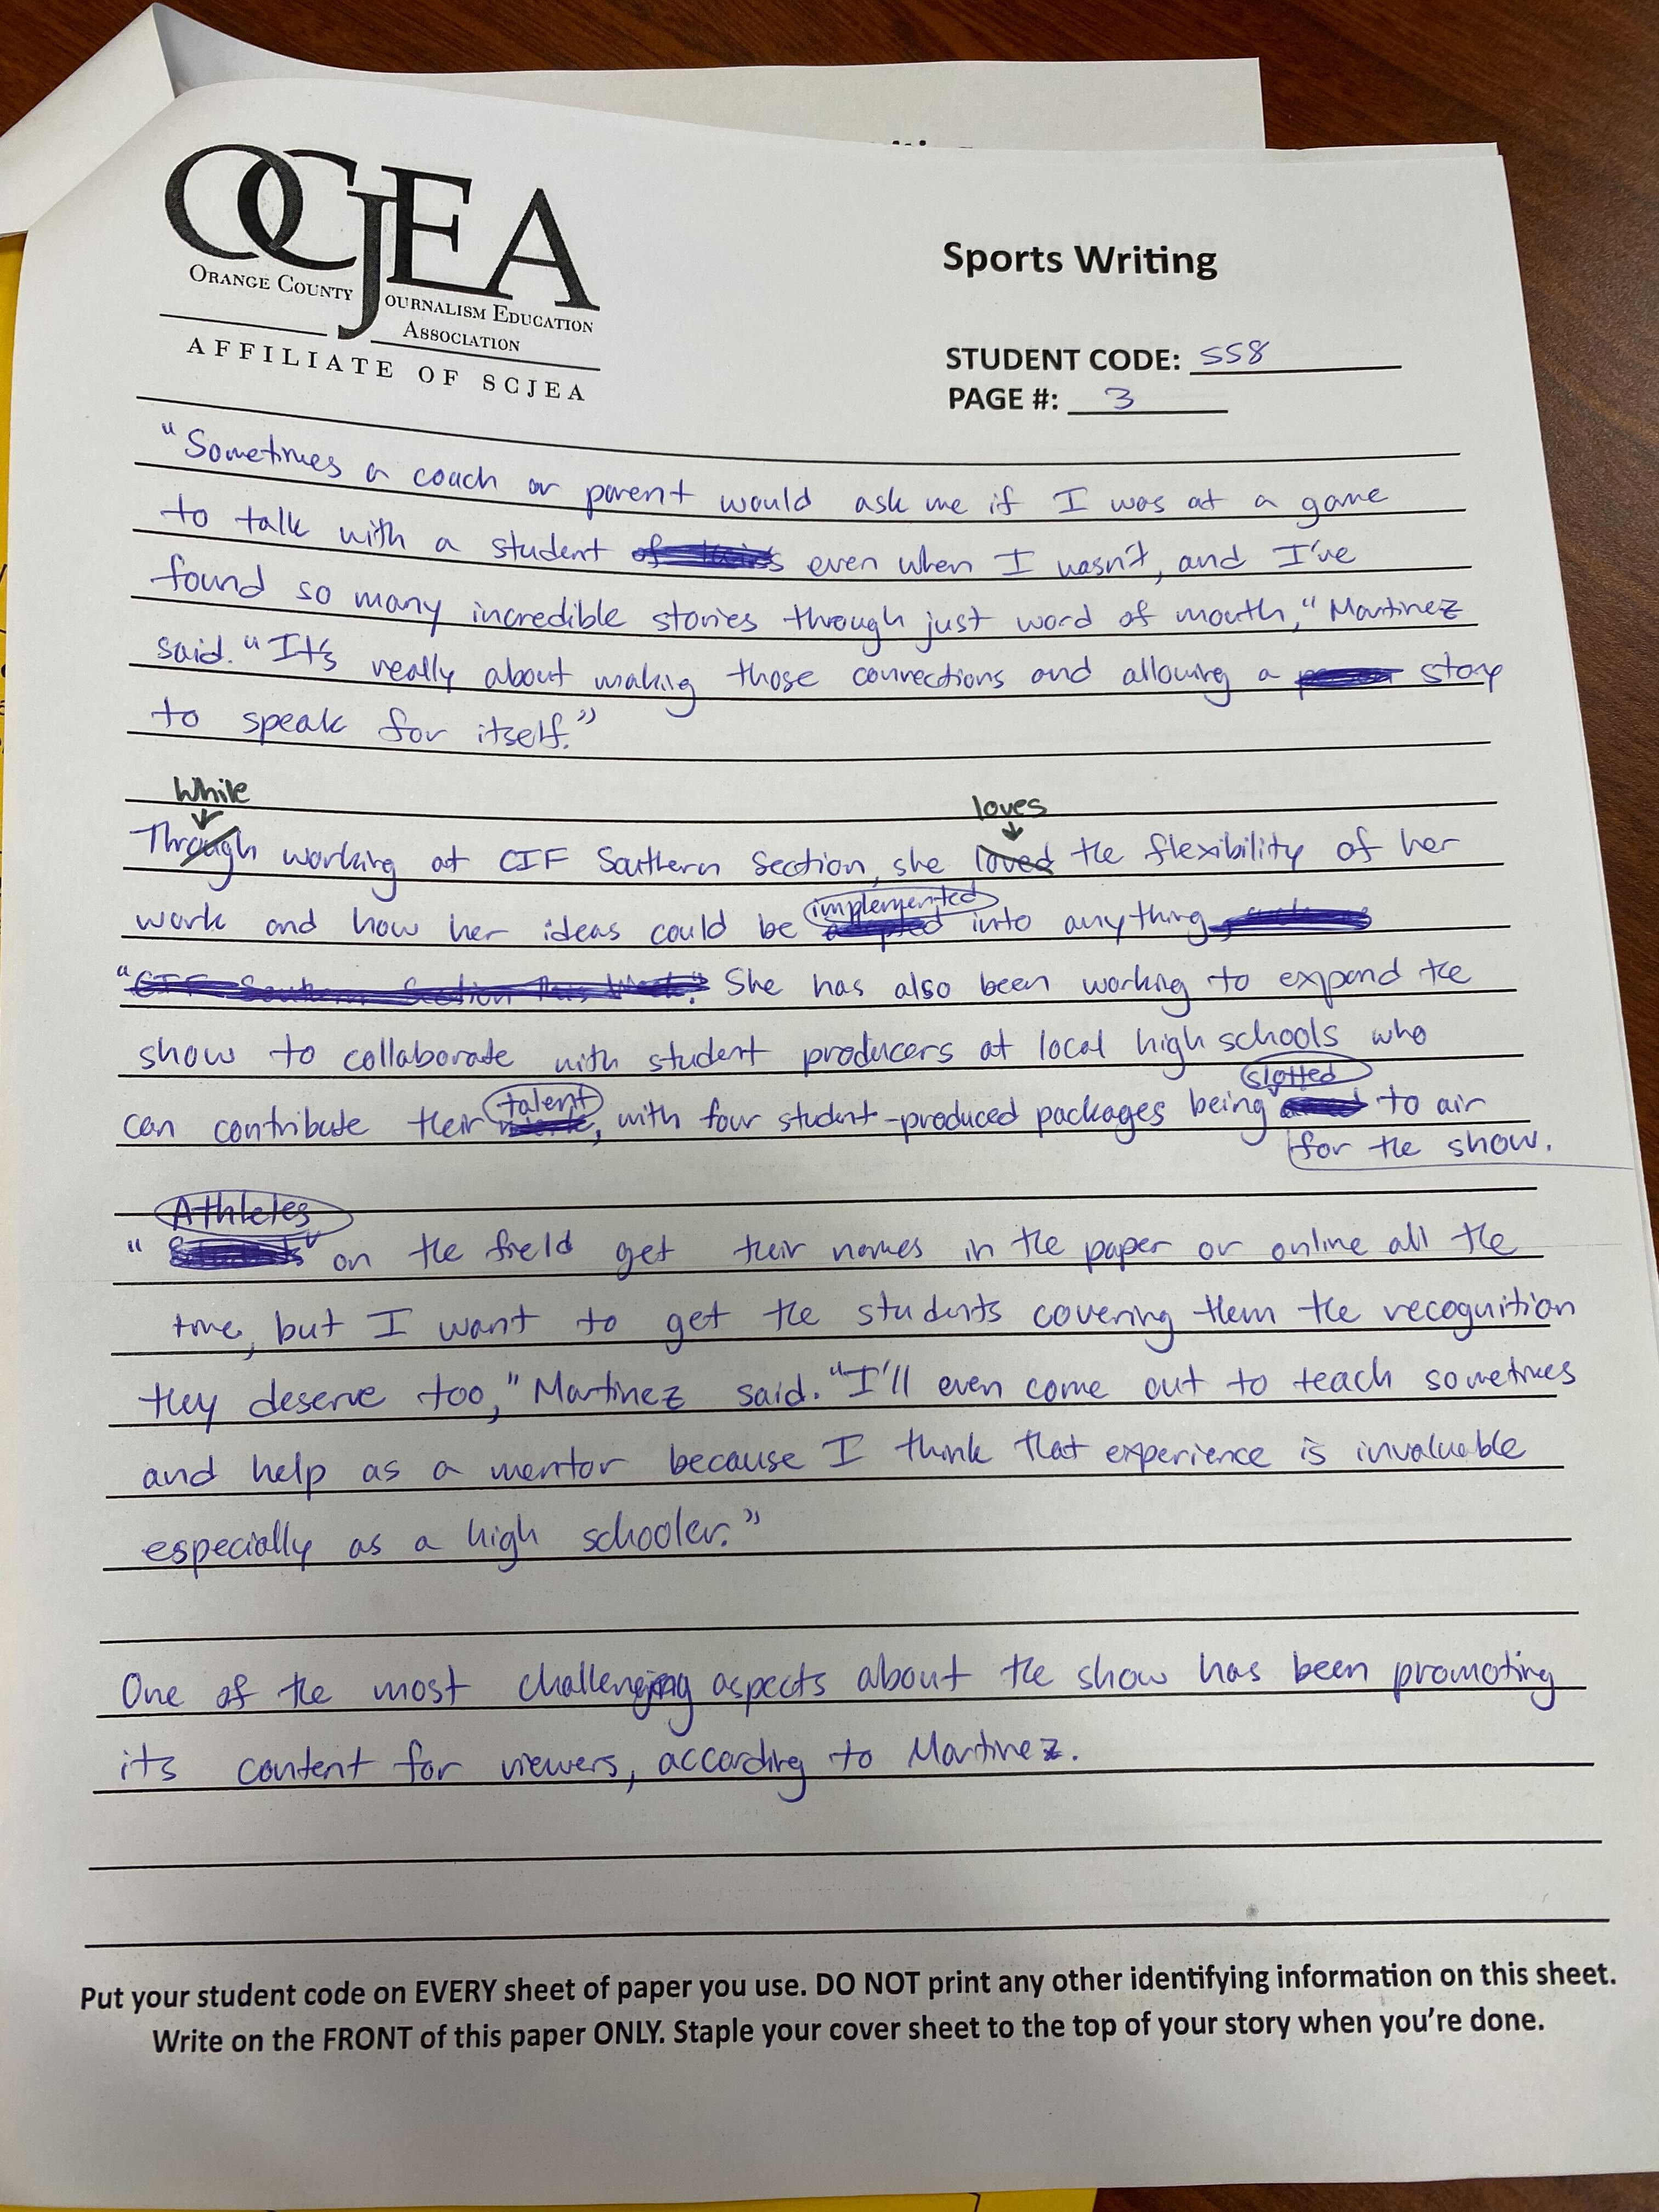 OCJEA
ORANGE COUNTY JOURNALISM EDUCATION
ASSOCIATION
AFFILIATE OF SCJEA
Sports Writing
STUDENT CODE: SS8
PAGE #: 3
"Sometimes a coach or parent would ask me if I was at a game
to talk with a student even when I wasn't, and I've
found so many incredible stories through just word of mouth," Martinez
said. "It's really about making those connections and allowing a story
to speak for itself."
While loves
Through working at CIF Southern Section, she loved the flexibility of her
work and how her ideas could be implemented into anything
"CIF Southern Section This Week." She has also been working to expand the
show to collaborate with student producers at local high schools who
can contribute their talent, with four student-produced packages being slotted to air
for the show.
Athletes
" on the field get their names in the paper or online all the
time, but I want to get the students covering them the recognition
they deserve too," Martinez said. "I'll even come out to teach sometimes
and help as a mentor because I think that experience is invaluable
especially as a high schooler."
One of the most challenging aspects about the show has been promoting
its content for viewers, according to Martinez.
Put your student code on EVERY sheet of paper you use. DO NOT print any other identifying information on this sheet.
Write on the FRONT of this paper ONLY. Staple your cover sheet to the top of your story when you're done.